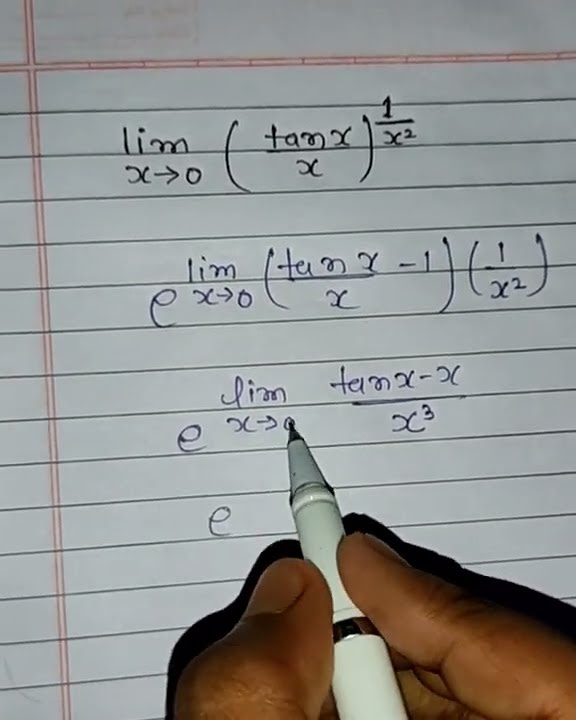 lim x→0 (tanx/x)^(1/x²)
e^(lim x→0 (tanx/x - 1)(1/x²))
e^(lim x→0 (tanx-x)/x³)
e